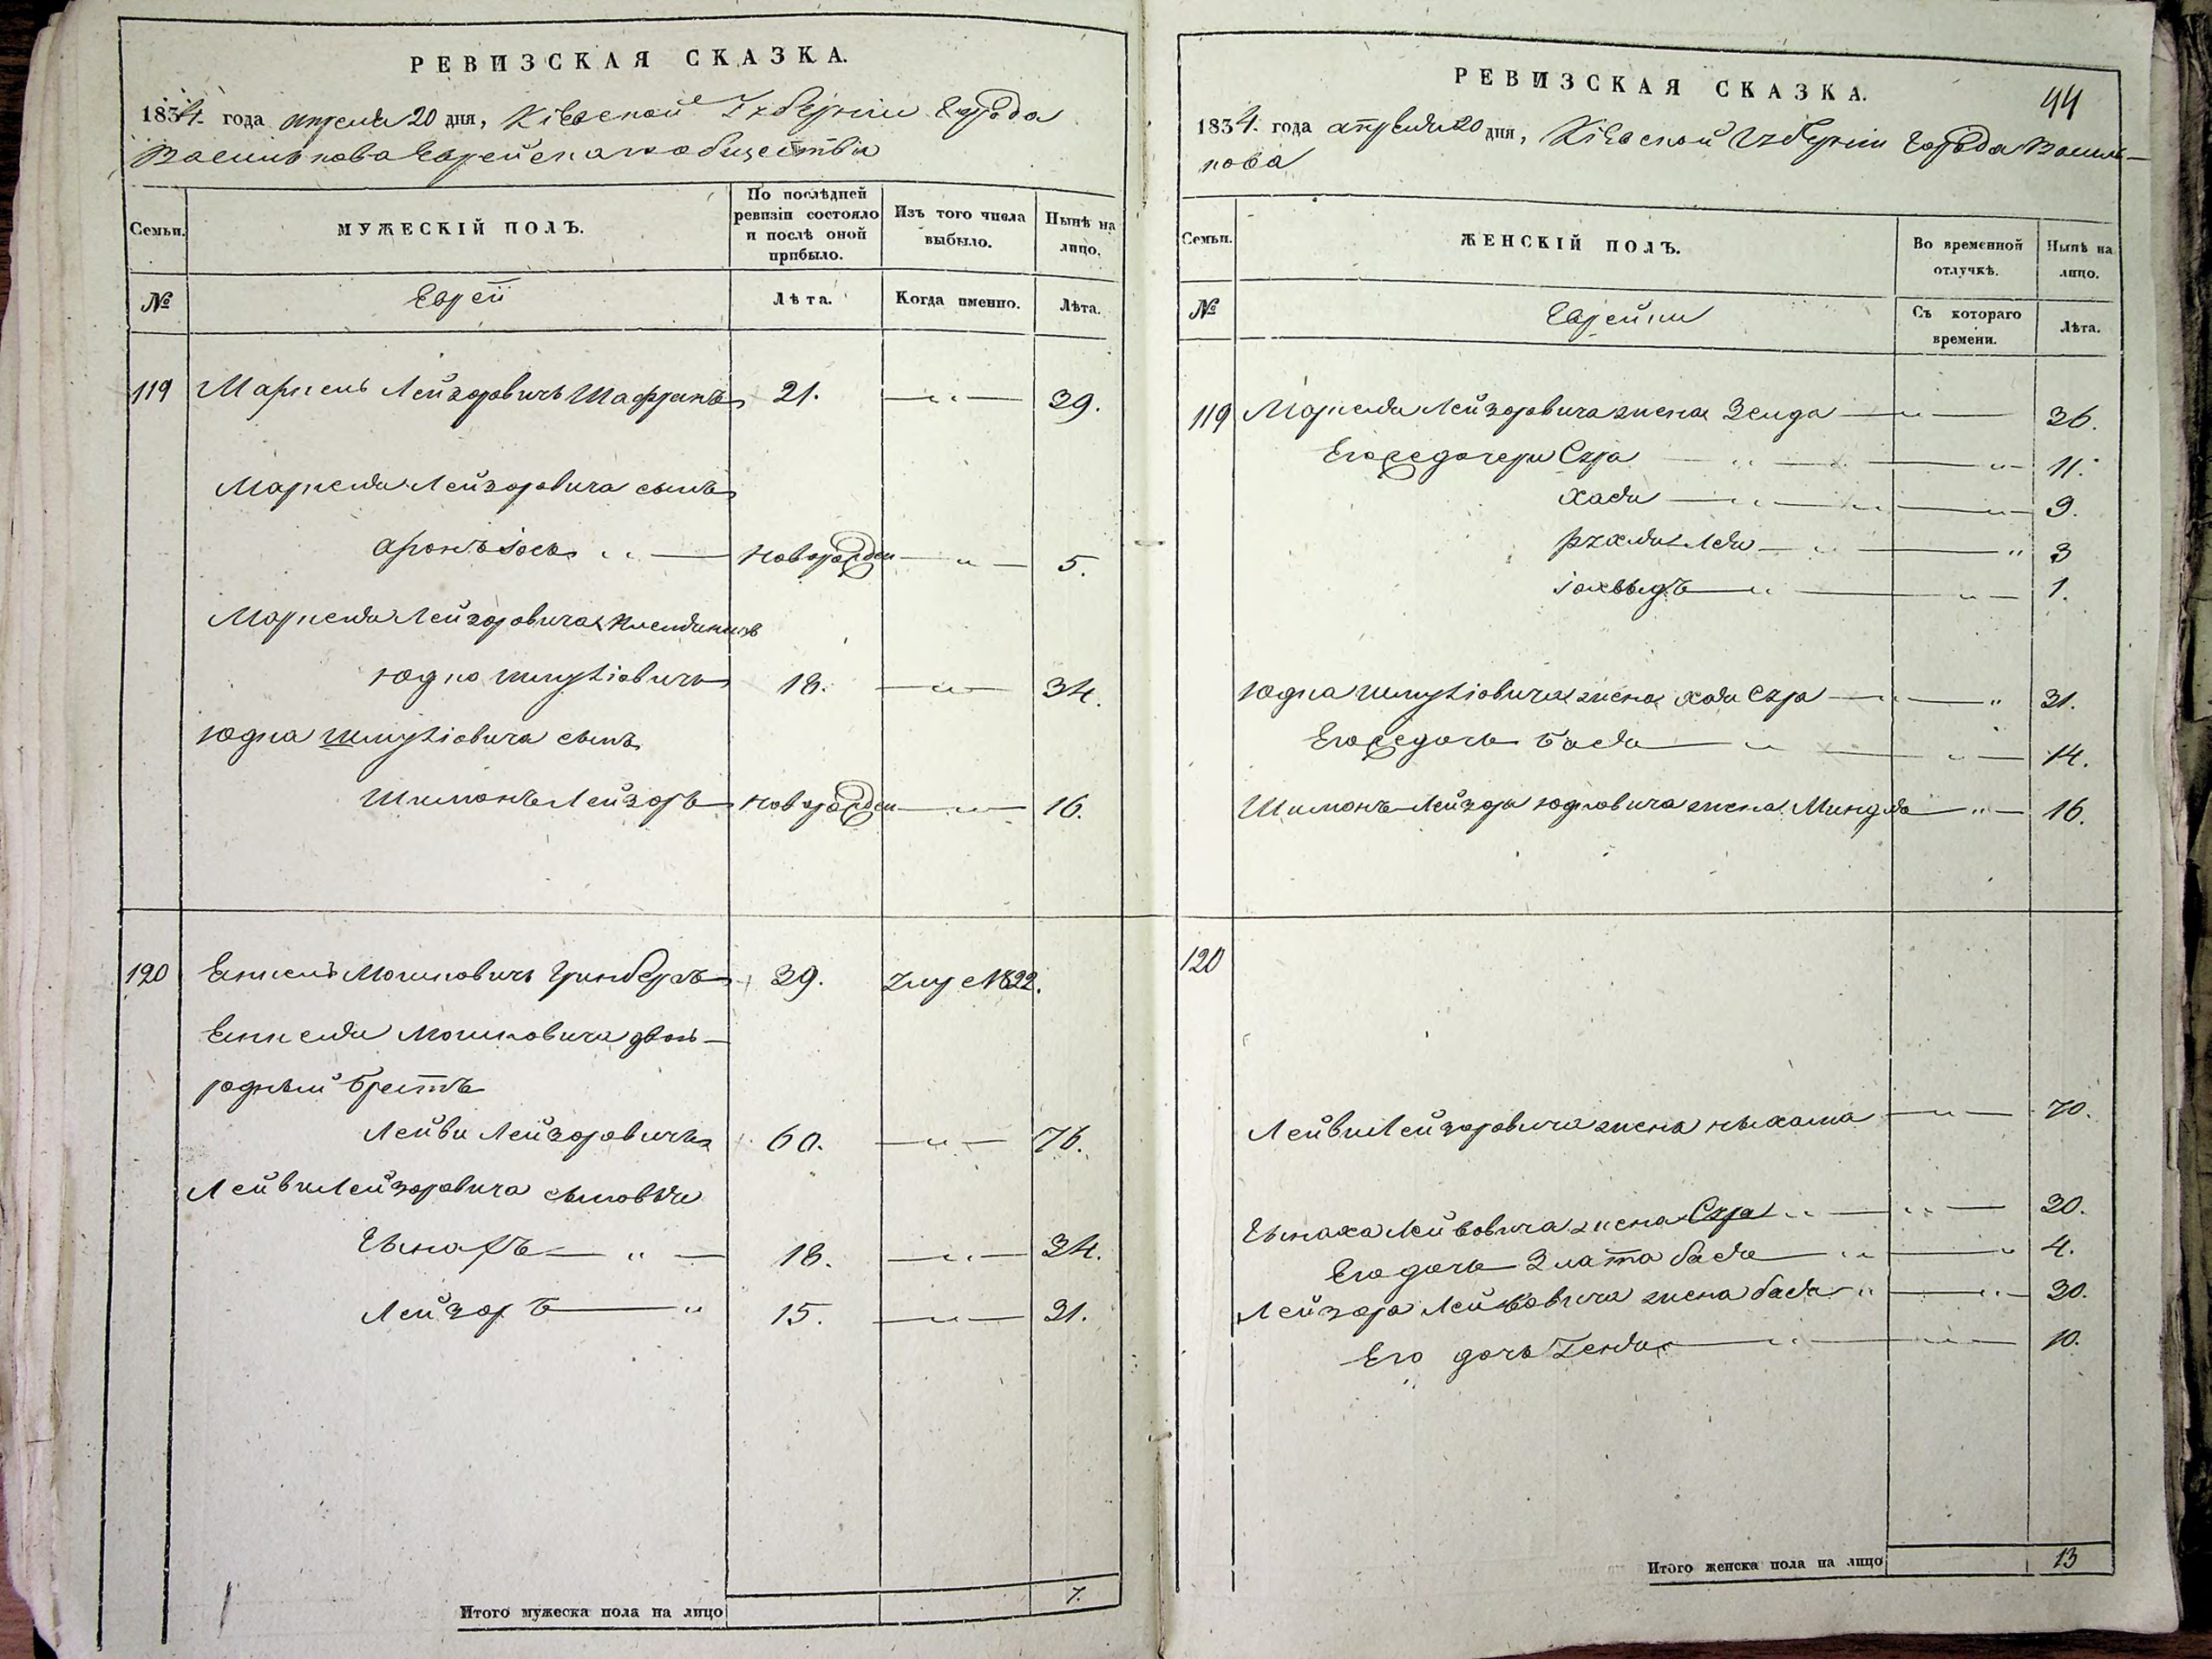 РЕВИЗСКАЯ СКАЗКА.
1834. года апреля 20 дня, Кіевской Губерніи Города
Василькова Еврейскаго общества
Семьи.
МУЖЕСКІЙ ПОЛЪ.
По послѣдней ревизіи состояло и послѣ оной прибыло.
Изъ того числа выбыло.
Нынѣ на лицо.
№
Евреи
Лѣта.
Когда именно.
Лѣта.
119 Маркель Лейзоровичъ Шафранъ 21. — 39.
Маркеля Лейзоровича сынъ
Аронъ Іось — новорожден — 5.
Маркеля Лейзоровича племянникъ
Юдко Шмуліовичъ 18. — 34.
Юдка Шмуліовича сынъ
Шимонъ Лейзоръ новорожден — 16.
120 Мошковичъ Гринбергъ 39. умре 1822.
Мошковича двою-
родный братъ
Лейви Лейзоровичъ 60. — 76.
Лейви Лейзоровича сыновья
18. — 34.
Лейзоръ — 15. — 31.
Итого мужеска пола на лицо 7.
РЕВИЗСКАЯ СКАЗКА.
44
1834. года апреля 20 дня, Кіевской Губерніи Города Василь-
кова
Семьи.
ЖЕНСКІЙ ПОЛЪ.
Во временной отлучкѣ.
Нынѣ на лицо.
№
Еврейки
Съ котораго времени.
Лѣта.
119 Маркеля Лейзоровича жена Зелда — 36.
Его дочери Сура — 11.
Хая — 9.
Рухля Лея — 3
Іохвыдъ — 1.
Юдка Шмуліовича жена Хая Сура — 31.
дочь Бася — 14.
Шимонъ Лейзора Юдковича жена Миндля — 16.
120
Лейви Лейзоровича жена Ныхама — 70.
Лейбовича жена Сура — 30.
Его дочь Злата Бася — 4.
Лейзора Лейбовича жена Бася — 30.
Его дочь Геня — 10.
Итого женска пола на лицо 13